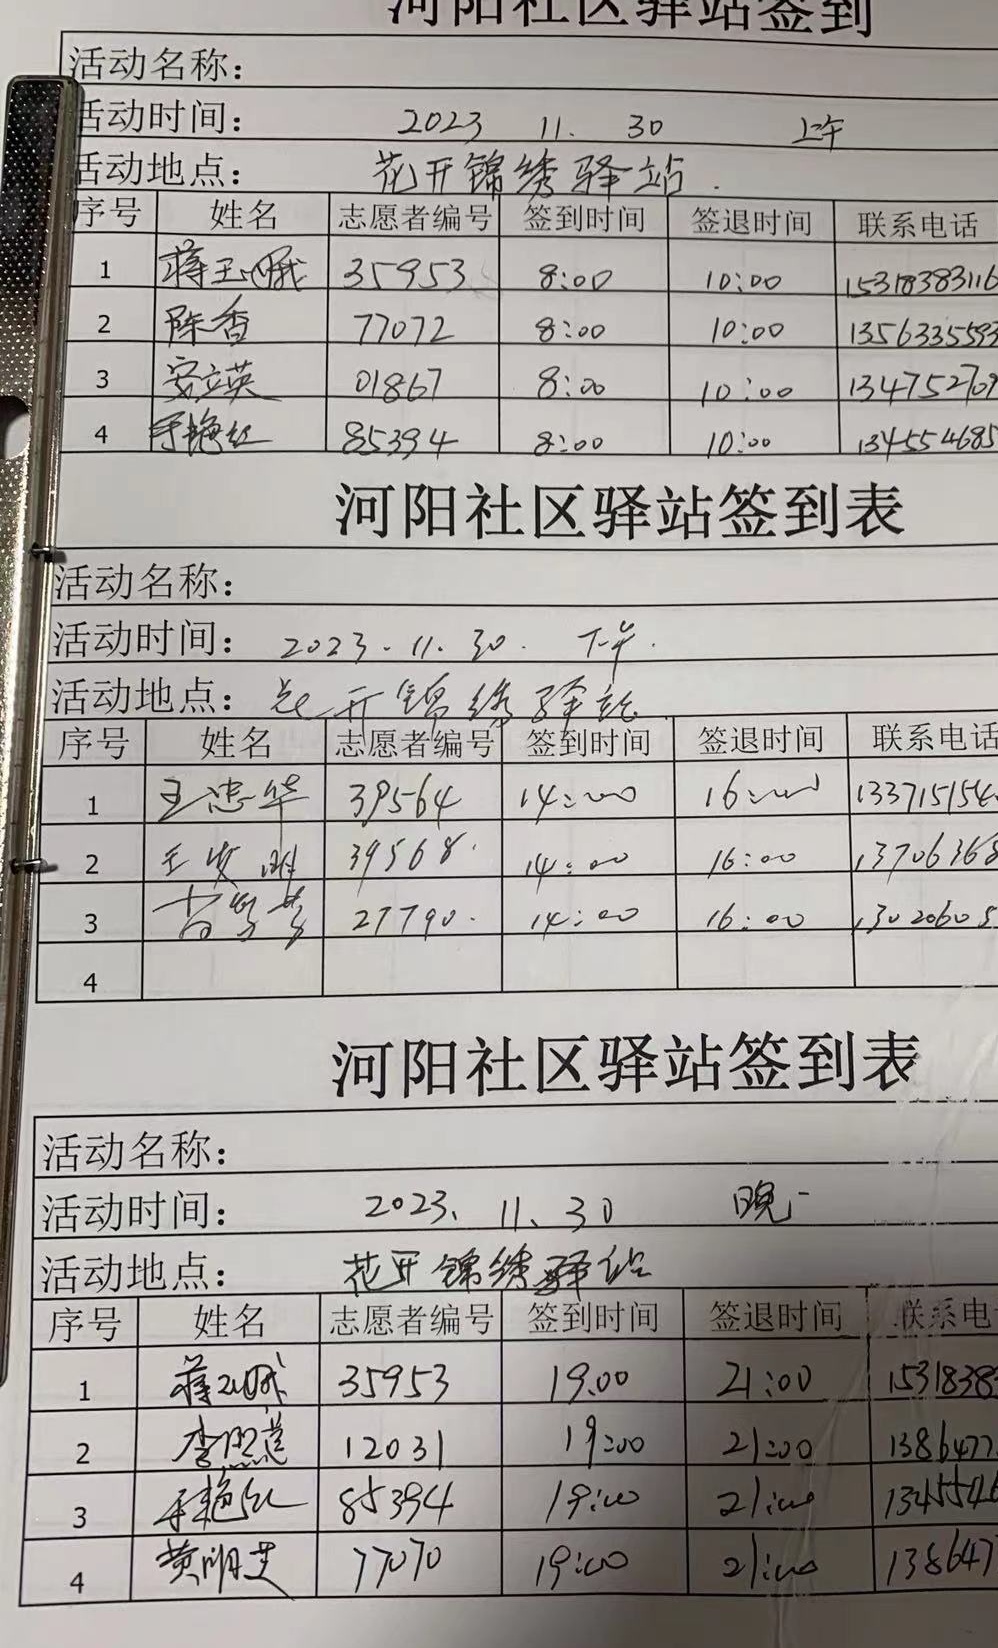 河阳社区驿站签到
活动名称：
活动时间： 2023 11. 30 上午
活动地点： 花开锦绣驿站.
序号 姓名 志愿者编号 签到时间 签退时间 联系电话
1 蒋玉娥 35953 8:00 10:00 15318383116
2 陈香 77072 8:00 10:00 1356335593
3 安立英 01867 8:00 10:00 134752709
4 于艳红 85394 8:00 10:00 134554685
河阳社区驿站签到表
活动名称：
活动时间： 2023.11.30. 下午.
活动地点： 花开锦绣驿站
序号 姓名 志愿者编号 签到时间 签退时间 联系电话
1 王忠华 39564 14:00 16:00 133715154
2 王发明 39568. 14:00 16:00 13706368
3 27790. 14:00 16:00 13020605
4
河阳社区驿站签到表
活动名称：
活动时间： 2023、11、30 晚上
活动地点： 花开锦绣驿站
序号 姓名 志愿者编号 签到时间 签退时间 联系电
1 蒋玉娥 35953 19:00 21:00 1531838
2 李照滨 12031 19:00 21:00 1386477
3 于艳红 85394 19:00 21:00 1345546
4 黄明芝 77070 19:00 21:00 138647